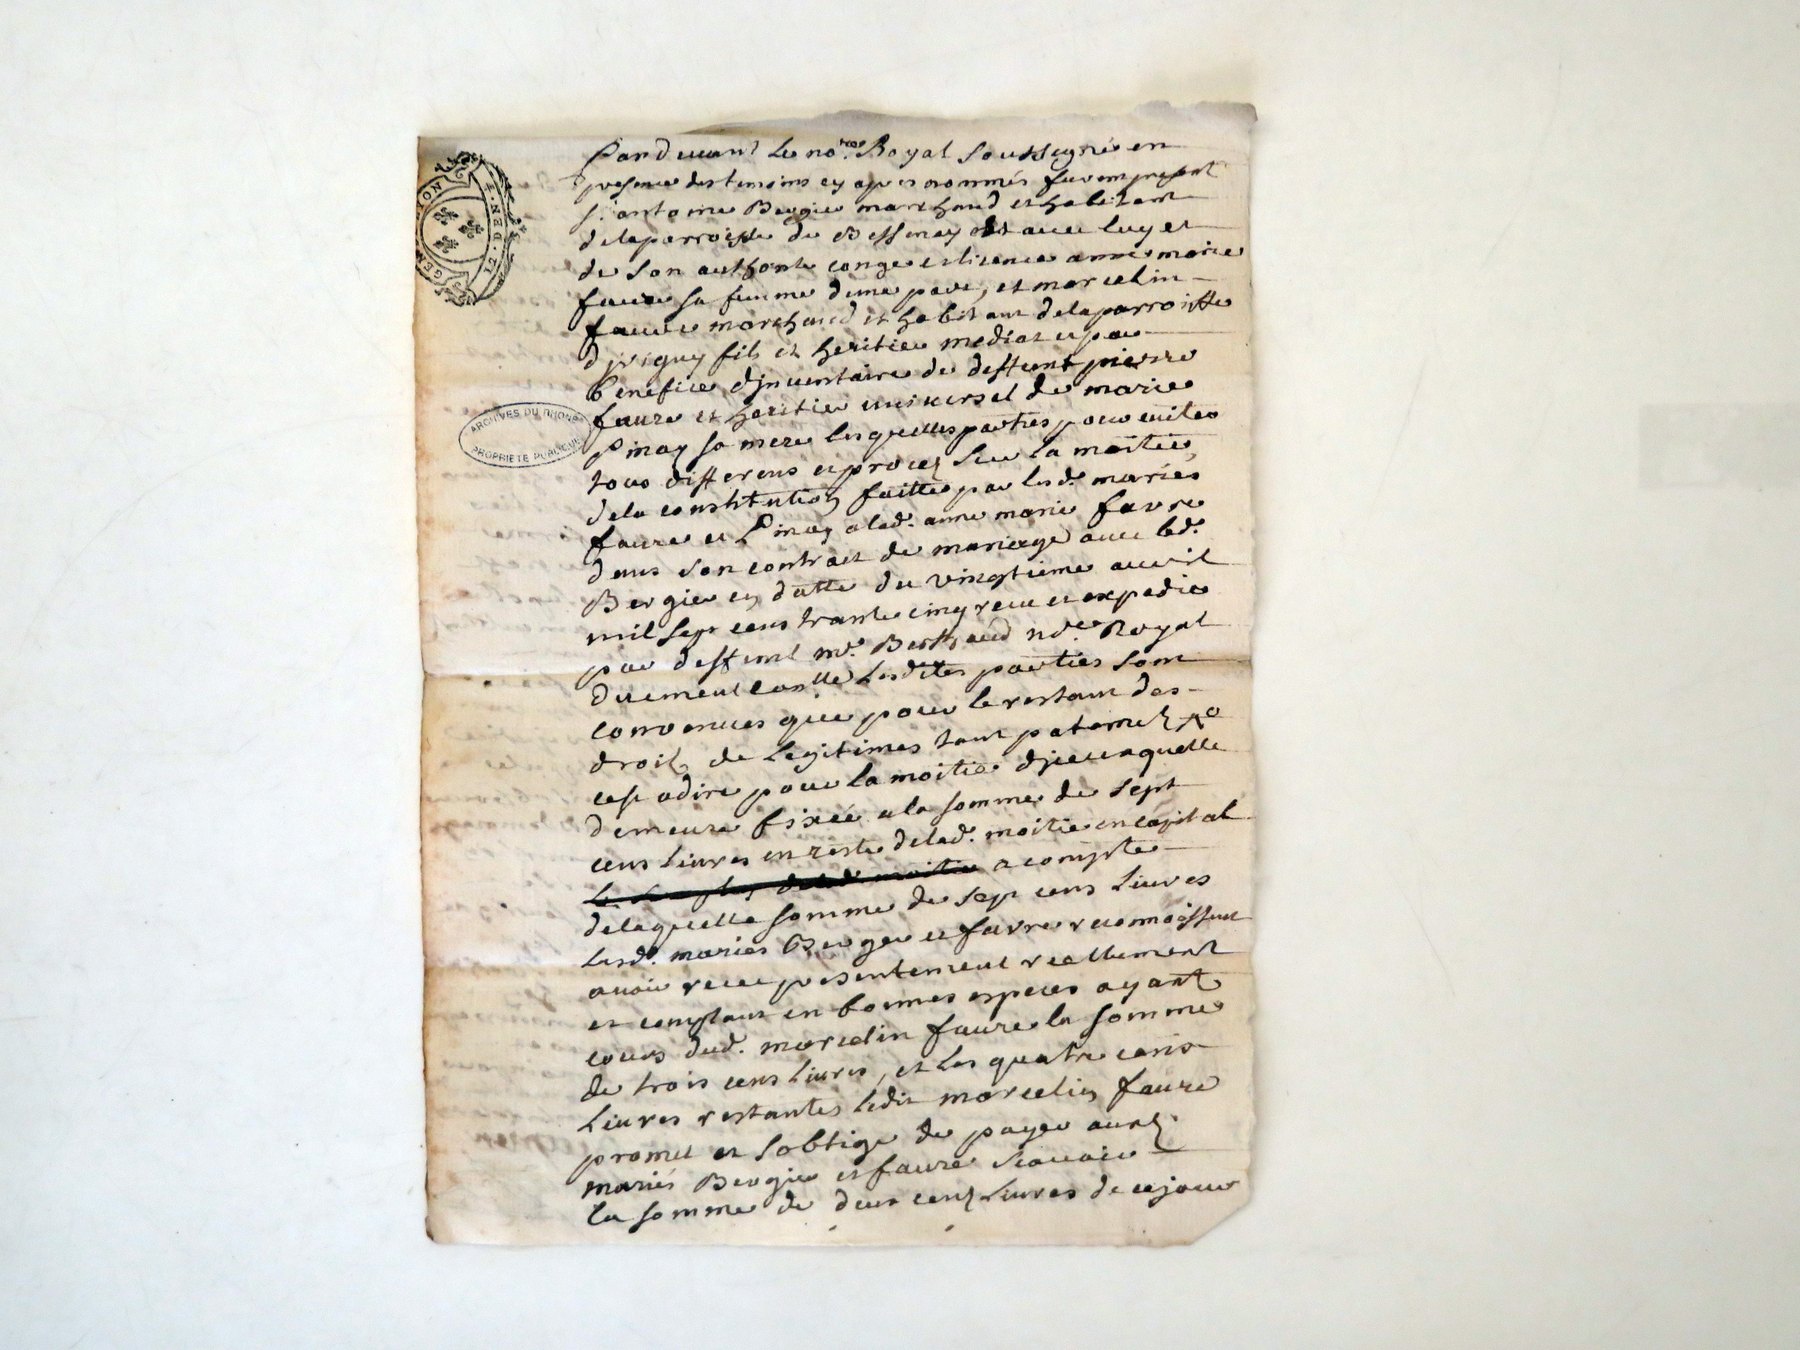 GEN LION
LI. DEN. 4
ARCHIVES DU RHONE
PROPRIETE PUBLIQUE
Pardevant Le no.re Royal Soussigné en
presence des temoins cy apres nommés furent present
s.r antoine Bergier marchand et habitant
dela parroisse de Bessenay et avec luy et
de son authorité conge et licence anne marie
faure sa femme d'une part, et marcelin
faure marchand et habitant dela parroisse
d'jvigny fils et heritier mediat et par
benefice d'jnventaire de deffunt pierre
faure et heritier universel de marie
Pinay sa mere lesquelles parties pour eviter
tous differens et procez sur la moitié
dela constitution faitte par lesd. mariés
faure et Pinay a lad. anne marie favre
dans son contrat de mariage avec led.
Bergier en datte du vingtieme avril
mil sept cens trante cinq receu et expedié
par deffunt m.e Berthaud no.re Royal
duement con.llé Lesdites parties sont
convenues que pour le restant des
droits de Legitimes tant paternelz
cest adire pour la moitié d'jceux quelle
demeure fixée a la somme de sept
cens Livres en reste delad. moitié en capital
acompte
delaquelle somme de sept cens Livres
Lesd. mariés Bergier et favre reconnoissent
avoir receu presentement reellement
et comptant en bonnes especes ayant
cours dud. marcelin faure la somme
de trois cens Livres, et Les quatre cens
Livres restantes Ledit marcelin faure
promet et soblige de payer auxd.
mariés Bergier et faure scavoir
la somme de deux cens Livres de ce jour